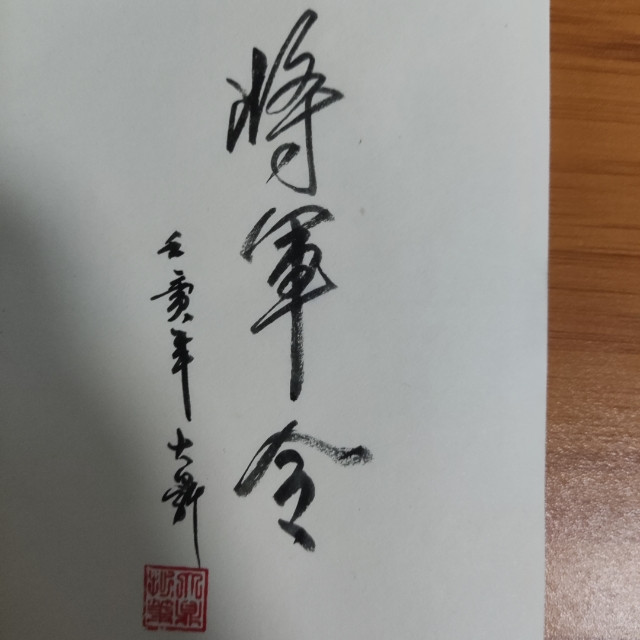 將軍令
壬寅年 大鼎